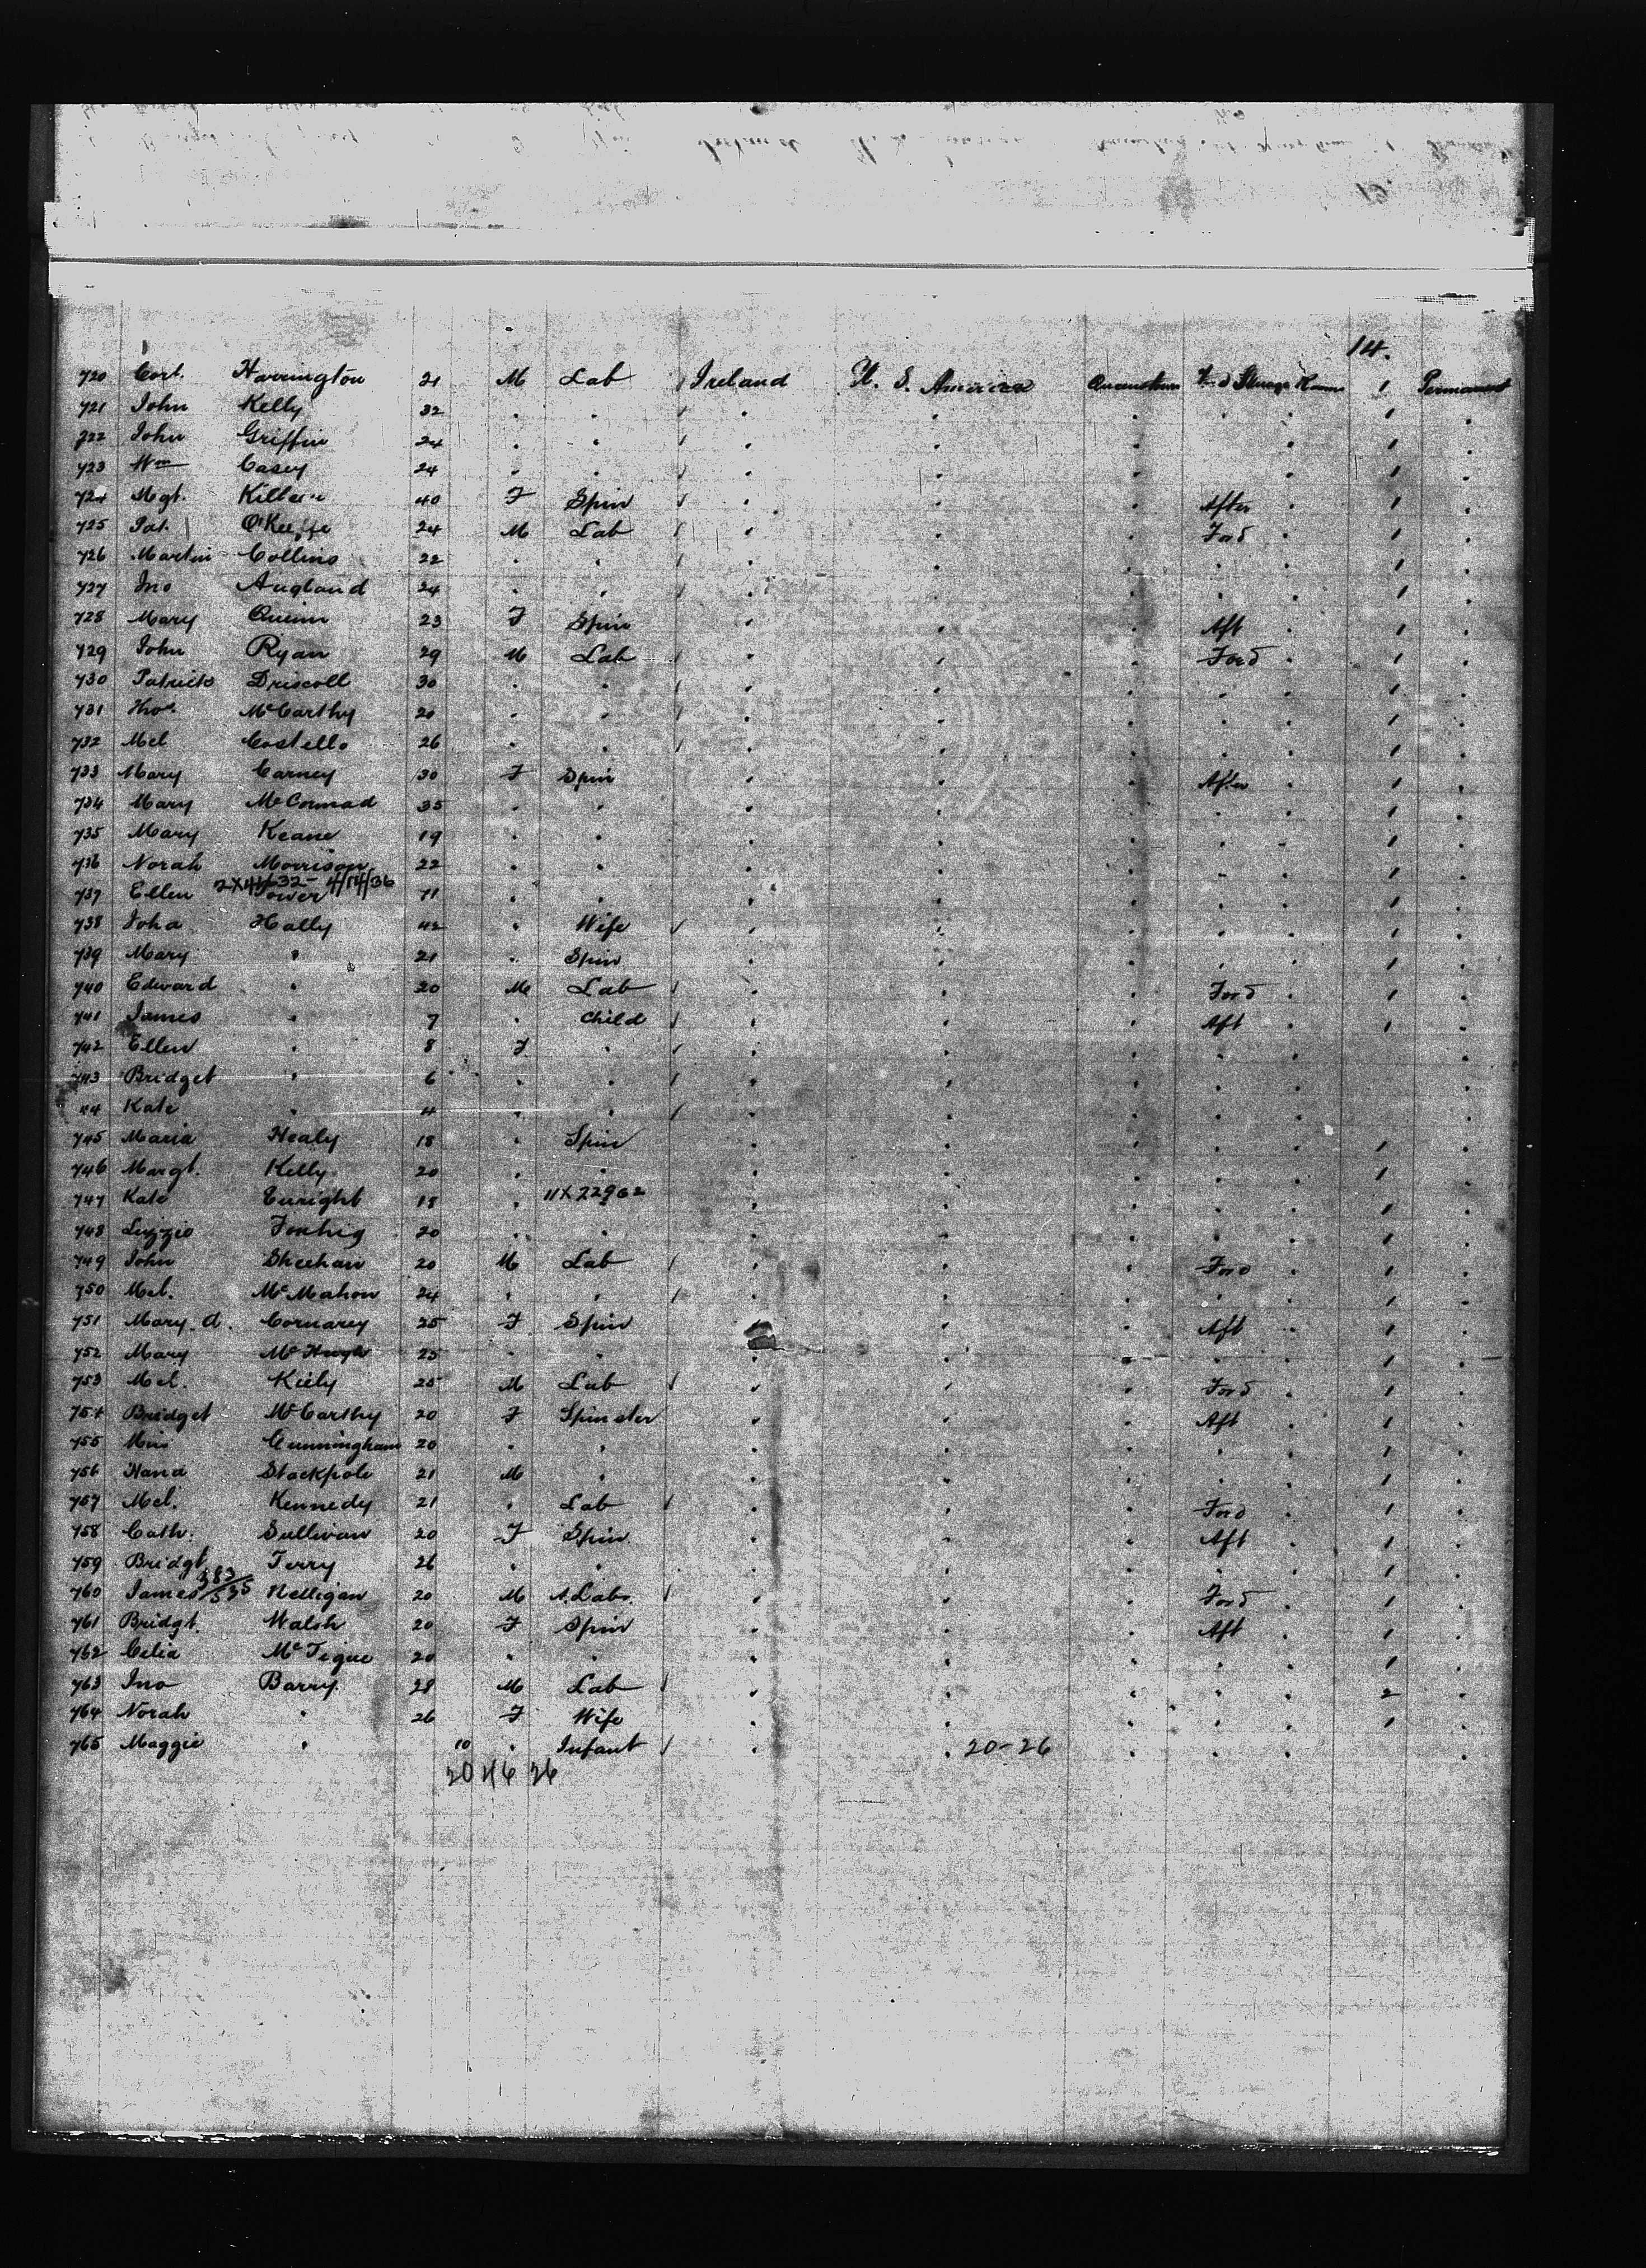 14.
720 Cort. Harrington 21 M Lab Ireland U. S. America Queenstown Ford Steerage 1 Permanent
721 John Kelly 32 " " " " " " " 1 "
722 John Griffin 24 " " " " " " " 1 "
723 Wm Casey 24 " " " " " " " 1 "
724 Mgt. Killeen 40 F Spin " " " After " 1 "
725 Pat. O'Keeffe 24 M Lab " " " Ford " 1 "
726 Martin Collins 22 " " " " " " " 1 "
727 Jno Angland 24 " " " " " " " 1 "
728 Mary Quinn 23 F Spin " " " Aft " 1 "
729 John Ryan 29 M Lab " " " Ford " 1 "
730 Patrick Driscoll 30 " " " " " " " 1 "
731 Thos. McCarthy 20 " " " " " " " 1 "
732 Mcl Costello 26 " " " " " " " 1 "
733 Mary Carney 30 F Spin " " " After " 1 "
734 Mary McCormad 35 " " " " " " " 1 "
735 Mary Keane 19 " " " " " " " 1 "
736 Norah Morrison 22 " " " " " " " 1 "
737 Ellen Power " " " " " " " 1 "
738 Joha Hally 42 " Wife " " " " " 1 "
739 Mary " 21 " Spin " " " " " 1 "
740 Edward " 20 M Lab " " " Ford " 1 "
741 James " 7 " Child " " " Aft " 1 "
742 Ellen " 8 F " " " " " " "
743 Bridget " 6 " " " " " " " "
44 Kate " 4 " " " " " " " "
745 Maria Healy 18 " Spin " " " " " 1 "
746 Margt. Kelly 20 " " " " " " " 1 "
747 Kate Enright 18 " 11X22962 " " " " " 1 "
748 Lizzie 20 " " " " " " " 1 "
749 John Sheehan 20 M Lab " " " Ford " 1 "
750 Mcl. McMahon 24 " " " " " " " 1 "
751 Mary. A. Cornarey 25 F Spin " " " Aft " 1 "
752 Mary McHugh 25 " " " " " " " 1 "
753 Mcl. Kiely 25 M Lab " " " Ford " 1 "
754 Bridget McCarthy 20 F Spinster " " " Aft " 1 "
755 Cunningham 20 " " " " " " " 1 "
756 Hana Stackpole 21 M " " " " " " 1 "
757 Mcl. Kennedy 21 " Lab " " " Ford " 1 "
758 Cath. Sullivan 20 F Spin. " " " Aft " 1 "
759 Bridgt Terry 26 " " " " " " " 1 "
760 James 383/535 Nelligan 20 M A. Labr. " " " Ford " 1 "
761 Bridgt. Walsh 20 F Spin " " " Aft " 1 "
762 Celia McTigue 20 " " " " " " " 1 "
763 Jno Barry. 28 M Lab " " " " " 2 "
764 Norah " 26 F Wife " " " " " 1 "
765 Maggie " 10 " Infant " " 20-26 " " " "
20 46 26